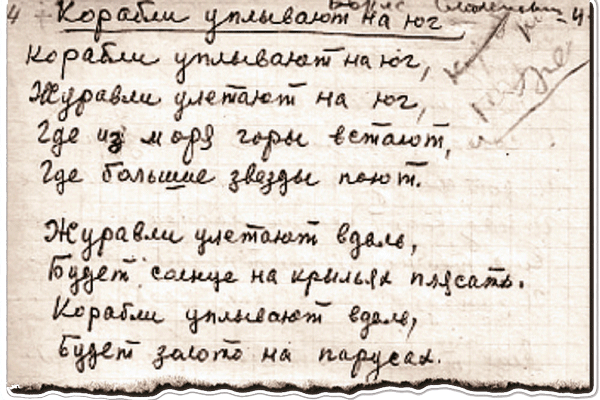 4 Корабли уплывают на юг -4-
Корабли уплывают на юг,
Журавли улетают на юг,
Где из моря горы встают,
Где большие звезды поют.
Журавли улетают вдаль,
Будет солнце на крыльях плясать.
Корабли уплывают вдаль,
Будет золото на парусах.